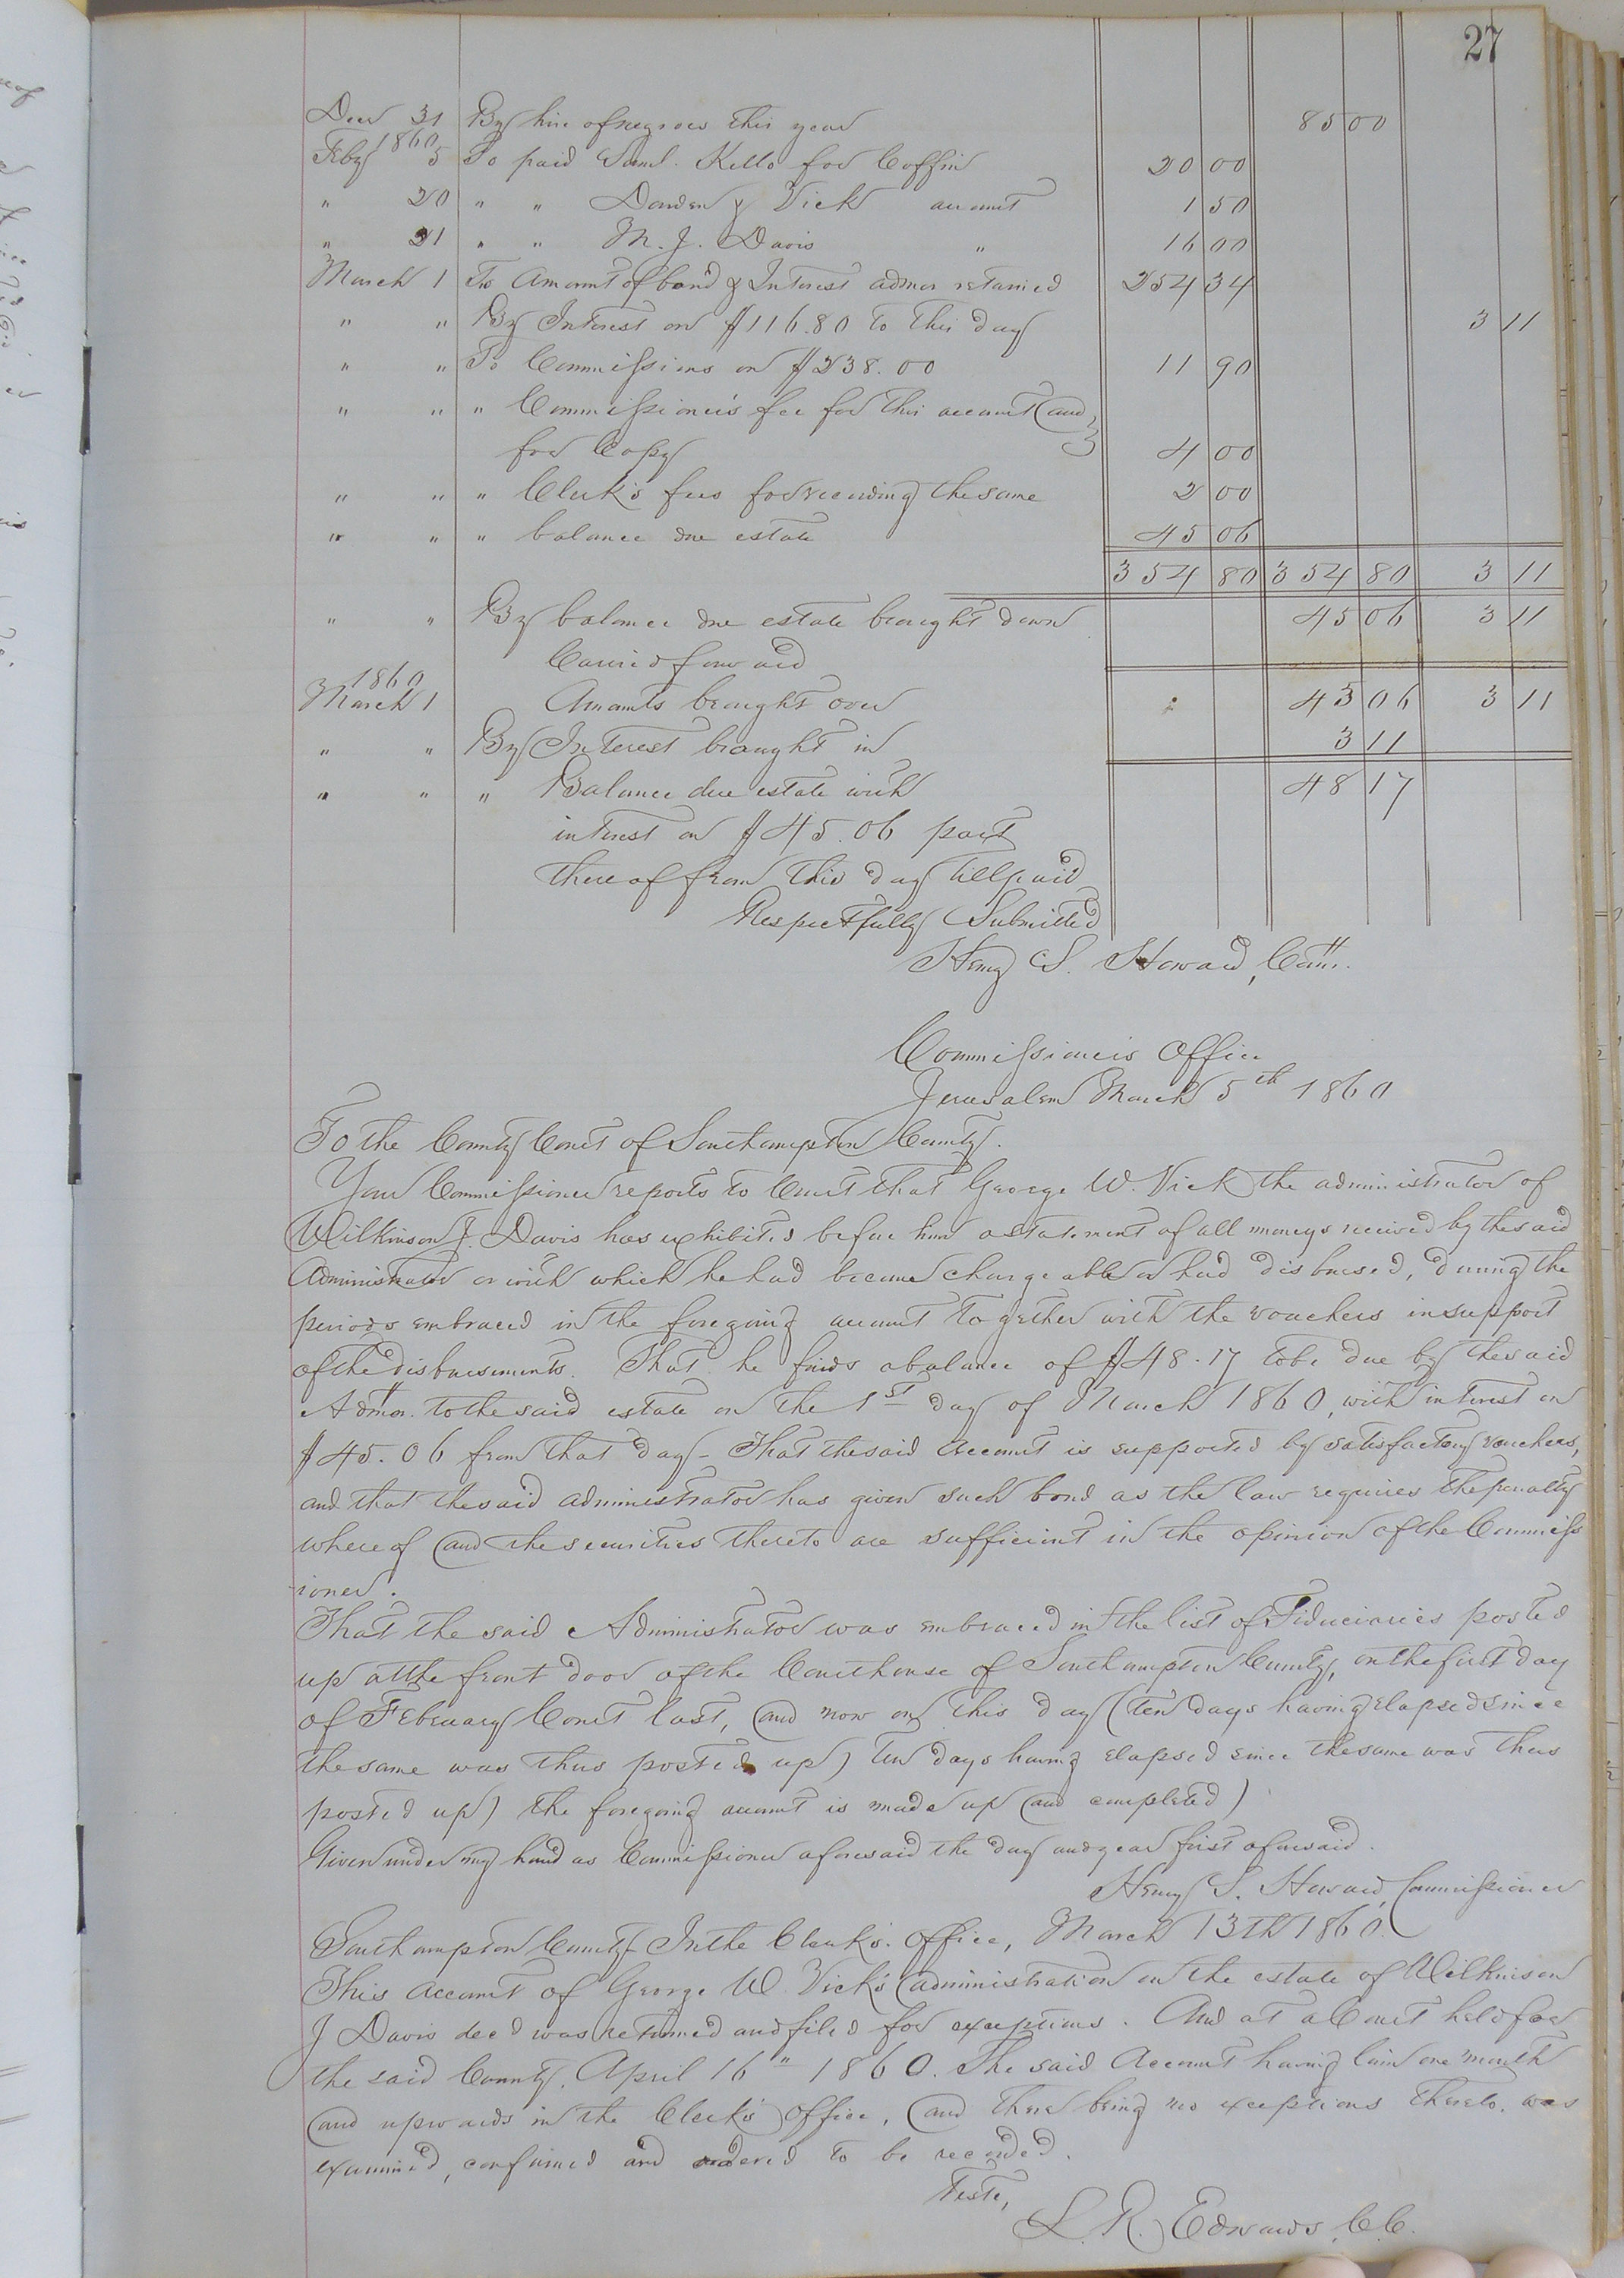 27
Decr 31 By hire of negroes this year 85 00
1860
Feby 5 To paid Saml. Kello for Coffin 20 00
" 20 " " Darden & Vick account 1 50
" 21 " " M. J. Davis " 16 00
March 1 To Amount of bond & Interest admor retained 254 34
" " By Interest on $116.80 to this day 3 11
" " To Commissions on $238.00 11 90
" " " Commissioner's fee for this account and
for Copy 4 00
" " " Clerk's fees for recording the same 2 00
" " " balance due estate 45 06
354 80 354 80 3 11
" " By balance due estate brought down 45 06 3 11
Carried forward
1860
March 1 Amounts brought over 45 06 3 11
" " By Interest brought in 3 11
" " " Balance due estate with 48 17
interest on $45.06 part
thereof from this day till paid
Respectfully Submitted
Henry S. Howard, Comr.
Commissioners Office
Jerusalem March 5th 1860
To the County Court of Southampton County.
Your Commissioner reports to Court that George W. Vick the administrator of
Wilkinson J. Davis has exhibited before him a statement of all moneys received by the said
Administrator or with which he had become chargeable or had disbursed, during the
periods embraced in the foregoing account together with the vouchers in support
of the disbursements. That he finds a balance of $48.17 to be due by the said
Admor. to the said estate on the 1st day of March 1860, with interest on
$45.06 from that day - That the said account is supported by satisfactory vouchers,
and that the said administrator has given such bond as the law requires the penalty
whereof and the securities thereto are sufficient in the opinion of the Commiss
ioner.
That the said Administrator was embraced in the list of Fiduciaries posted
up at the front door of the Courthouse of Southampton County, on the first day
of February Court last, and now on this day (ten days having elapsed since
the same was thus posted up) ten days having elapsed since the same was thus
posted up) the foregoing account is made up and completed)
Given under my hand as Commissioner aforesaid the day and year first aforesaid.
Henry S. Howard, Commissioner
Southampton County In the Clerk's Office, March 13th 1860.
This Account of George W. Vick's administration on the estate of Wilkinson
J Davis decd was returned and filed for exceptions. And at a Court held for
the said County, April 16" 1860. The said Account having lain one month
and upwards in the Clerk's Office, and there being no exceptions thereto, was
examined, confirmed and ordered to be recorded.
Teste,
L. R. Edwards, C.C.